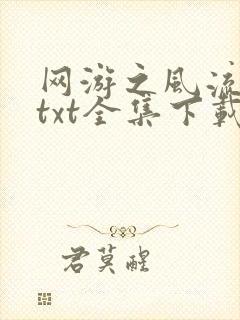 网游之风流
txt全集下载
君莫醒